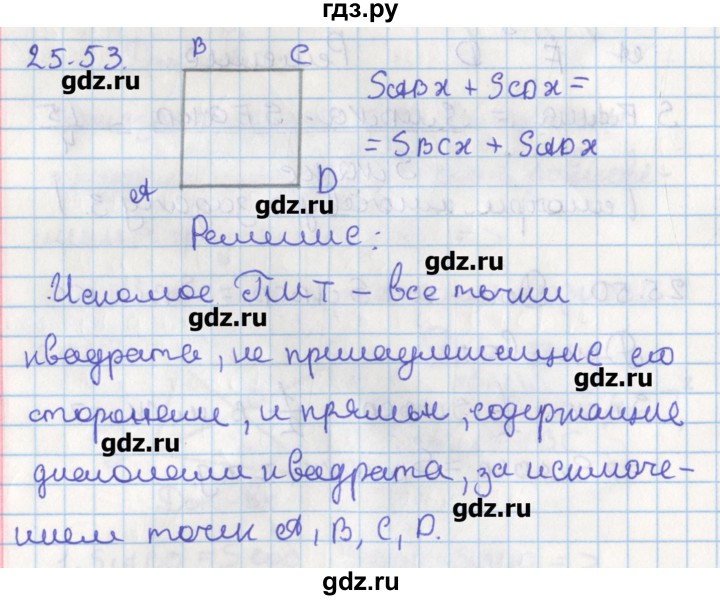 гдз.ру
25.53.
B
C
gdz.ru
S ABX + S CDX =
= S BCX + S ADX
A
D
gdz.ru
Решение:
gdz.ru
Искомое ГМТ – все точки
gdz.ru
квадрата, не принадлежащие его
gdz.ru
сторонам, и прямые, содержащие
gdz.ru
диагонали квадрата, за исключе-
gdz.ru
нием точек A, B, C, D.
gdz.ru